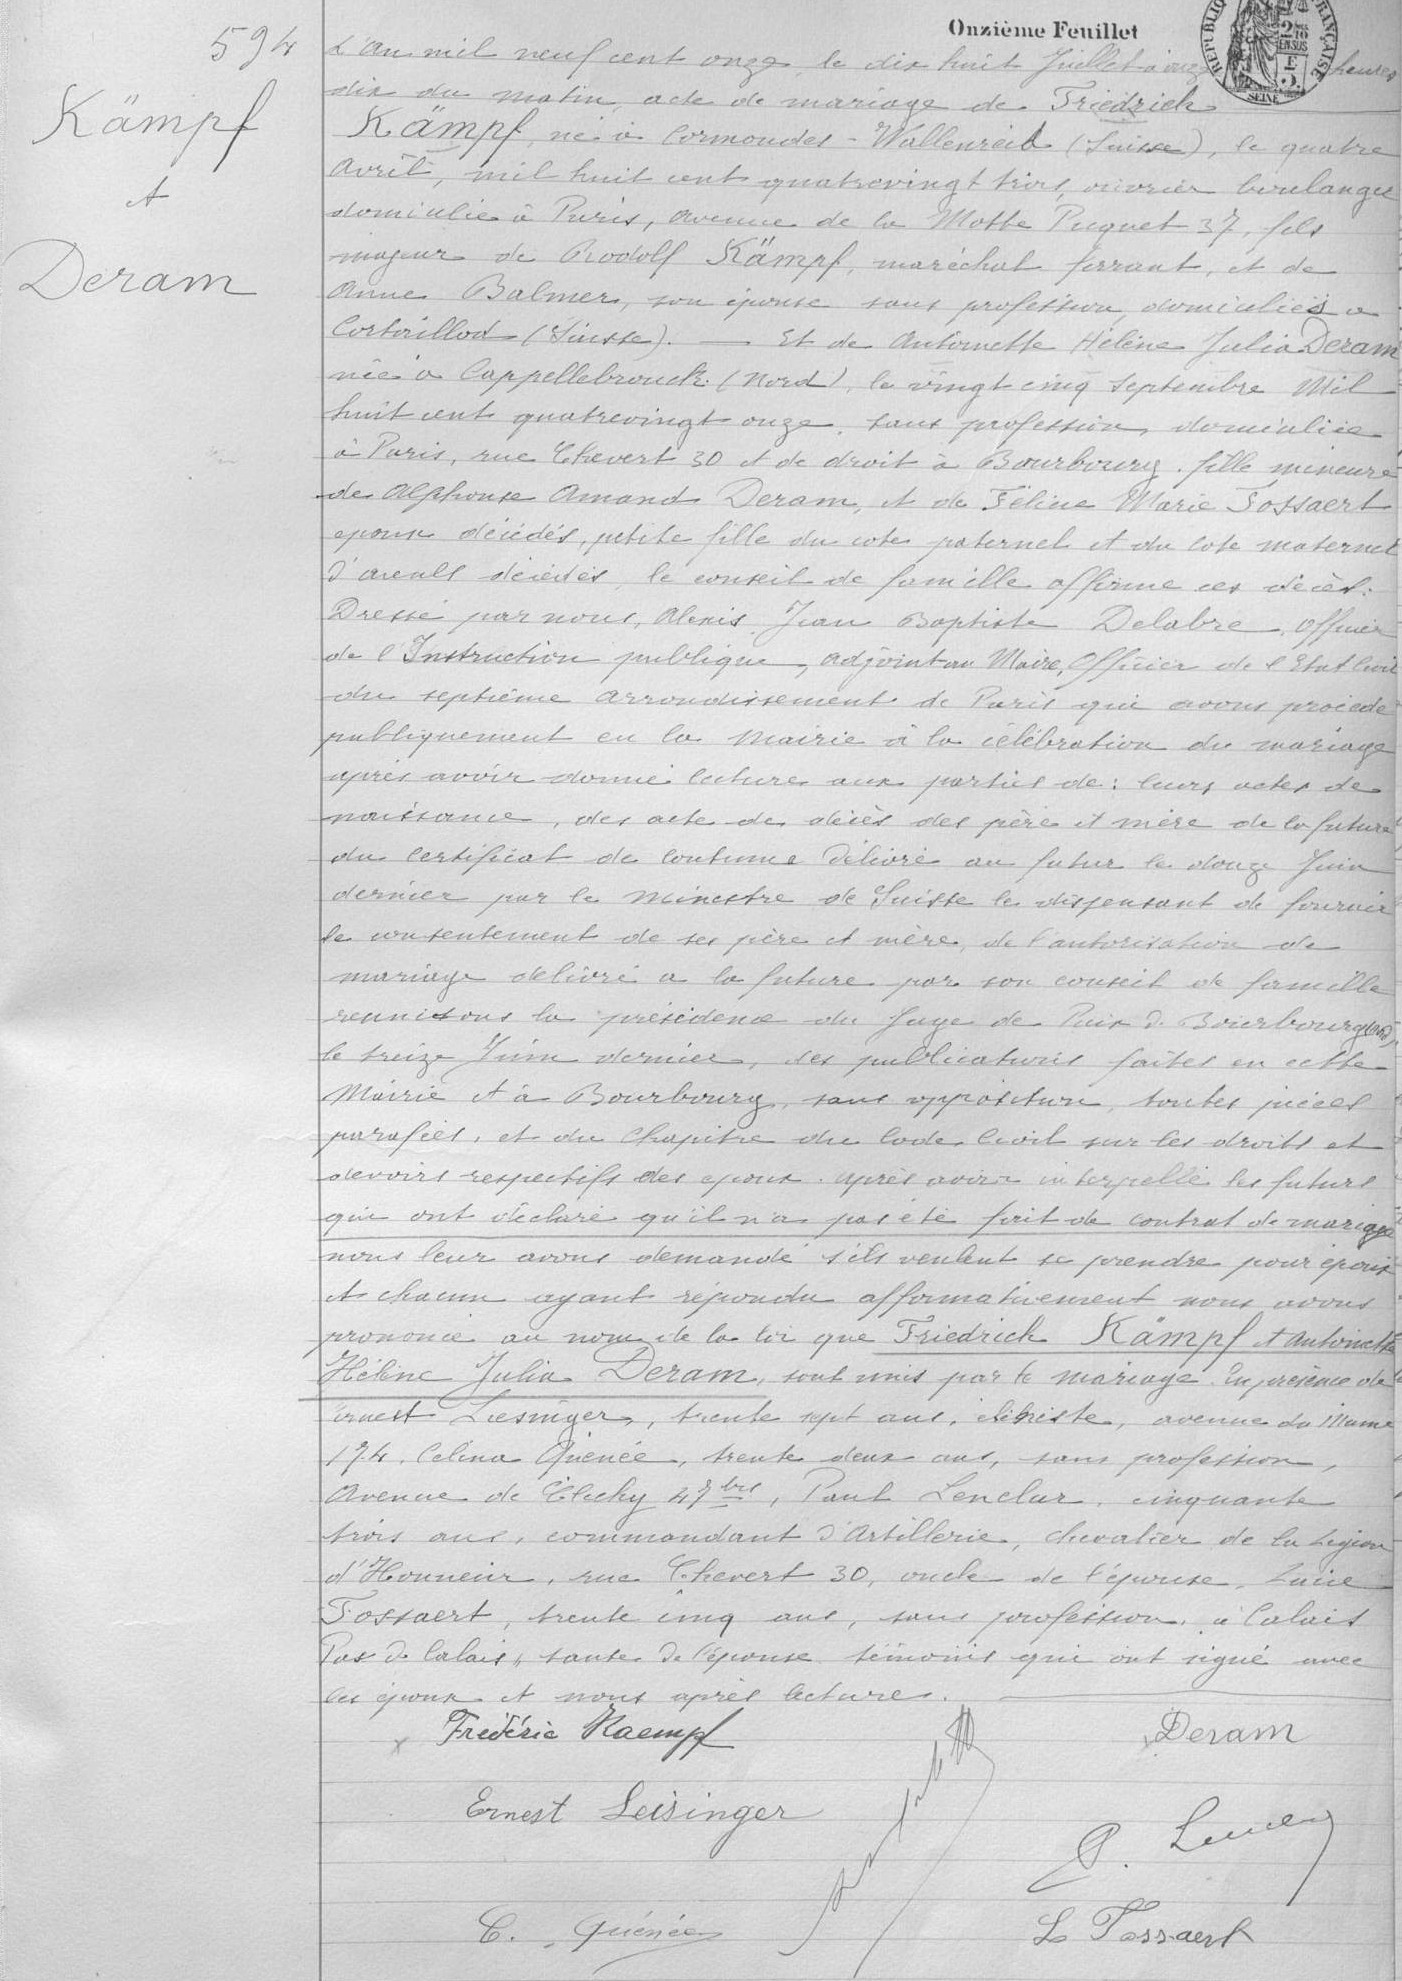 Onzième Feuillet
RÉPUBLIQUE FRANÇAISE
SEINE
594
Kämpf
et
Deram
L'An mil neuf cent onze, le dix huit Juillet à onze heures
dix du matin, acte de mariage de Friedrich
Kämpf, né à Cormondes - Wallenried (Suisse), le quatre
Avril, mil huit cent quatrevingt trois, ouvrier boulanger
domicilié à Paris, Avenue de la Motte Picquet 37, fils
majeur de Rodolf Kämpf, maréchal ferrant, et de
Anne Balmer, son épouse sans profession, domiciliés à
Cortaillod (Suisse). — Et de Antoinette Hélène Julia Deram
née à Cappellebrouck (Nord), le vingt cinq Septembre Mil
huit cent quatrevingt onze, sans profession, domiciliée
à Paris, rue Chevert 30 et de droit à Bourbourg, fille mineure
de Alphonse Amand Deram, et de Féline Marie Fossaert
epoux décédés, petite fille du cote paternel et du cote maternel
d'aieuls décédés, le conseil de famille affirme ces décès.
Dressé par nous, Alexis Jean Baptiste Delabre, Officier
de l'Instruction publique, adjoint au Maire, Officier de l'Etat Civil
du septième arrondissement de Paris qui avons procédé
publiquement en la Mairie à la célébration du mariage
après avoir donné lecture aux parties de: leurs actes de
naissance, des acte de décès des père et mère de la future
du certificat de coutume délivré au futur le douze Juin
dernier par le Ministre de Suisse le dispensant de fournir
le consentement de ses père et mère, de l'autorisation de
mariage délivré a la future par son conseil de famille
reuni sous la présidence du Juge de Paix d. Bourbourg (Nord),
le treize Juin dernier, des publications faites en cette
Mairie et à Bourbourg, sans opposition, toutes pièces
parafées, et du Chapitre du Code Civil sur les droits et
devoirs respectifs des epoux. après avoir interpellé les futurs
qui ont déclaré qu'il n'a pas été fait de contrat de mariage
nous leur avons demandé s'ils veulent se prendre pour époux
et chacun ayant répondu affirmativement nous avons
prononcé au nom de la loi que Friedrich Kämpf et Antoinette
Hélène Julia Deram, sont unis par le mariage. En présence de
Ernest Leisinger, trente sept ans, ébéniste, avenue du Maine
174, Celina Quenée, trente deux ans, sans profession,
Avenue de Clichy 47 bis, Paul Lenclar, cinquante
trois ans, commandant d'Artillerie, chevalier de la Légion
d'Honneur, rue Chevert 30, oncle de l'épouse, Lucie
Fossaert, trente cinq ans, sans profession, à Calais
Pas d. Calais, tante de l'épouse témoins qui ont signé avec
les époux et nous après lecture.
Frédéric Kaempf
Deram
Ernest Leisinger
P.
C. Quénée
L Fossaert